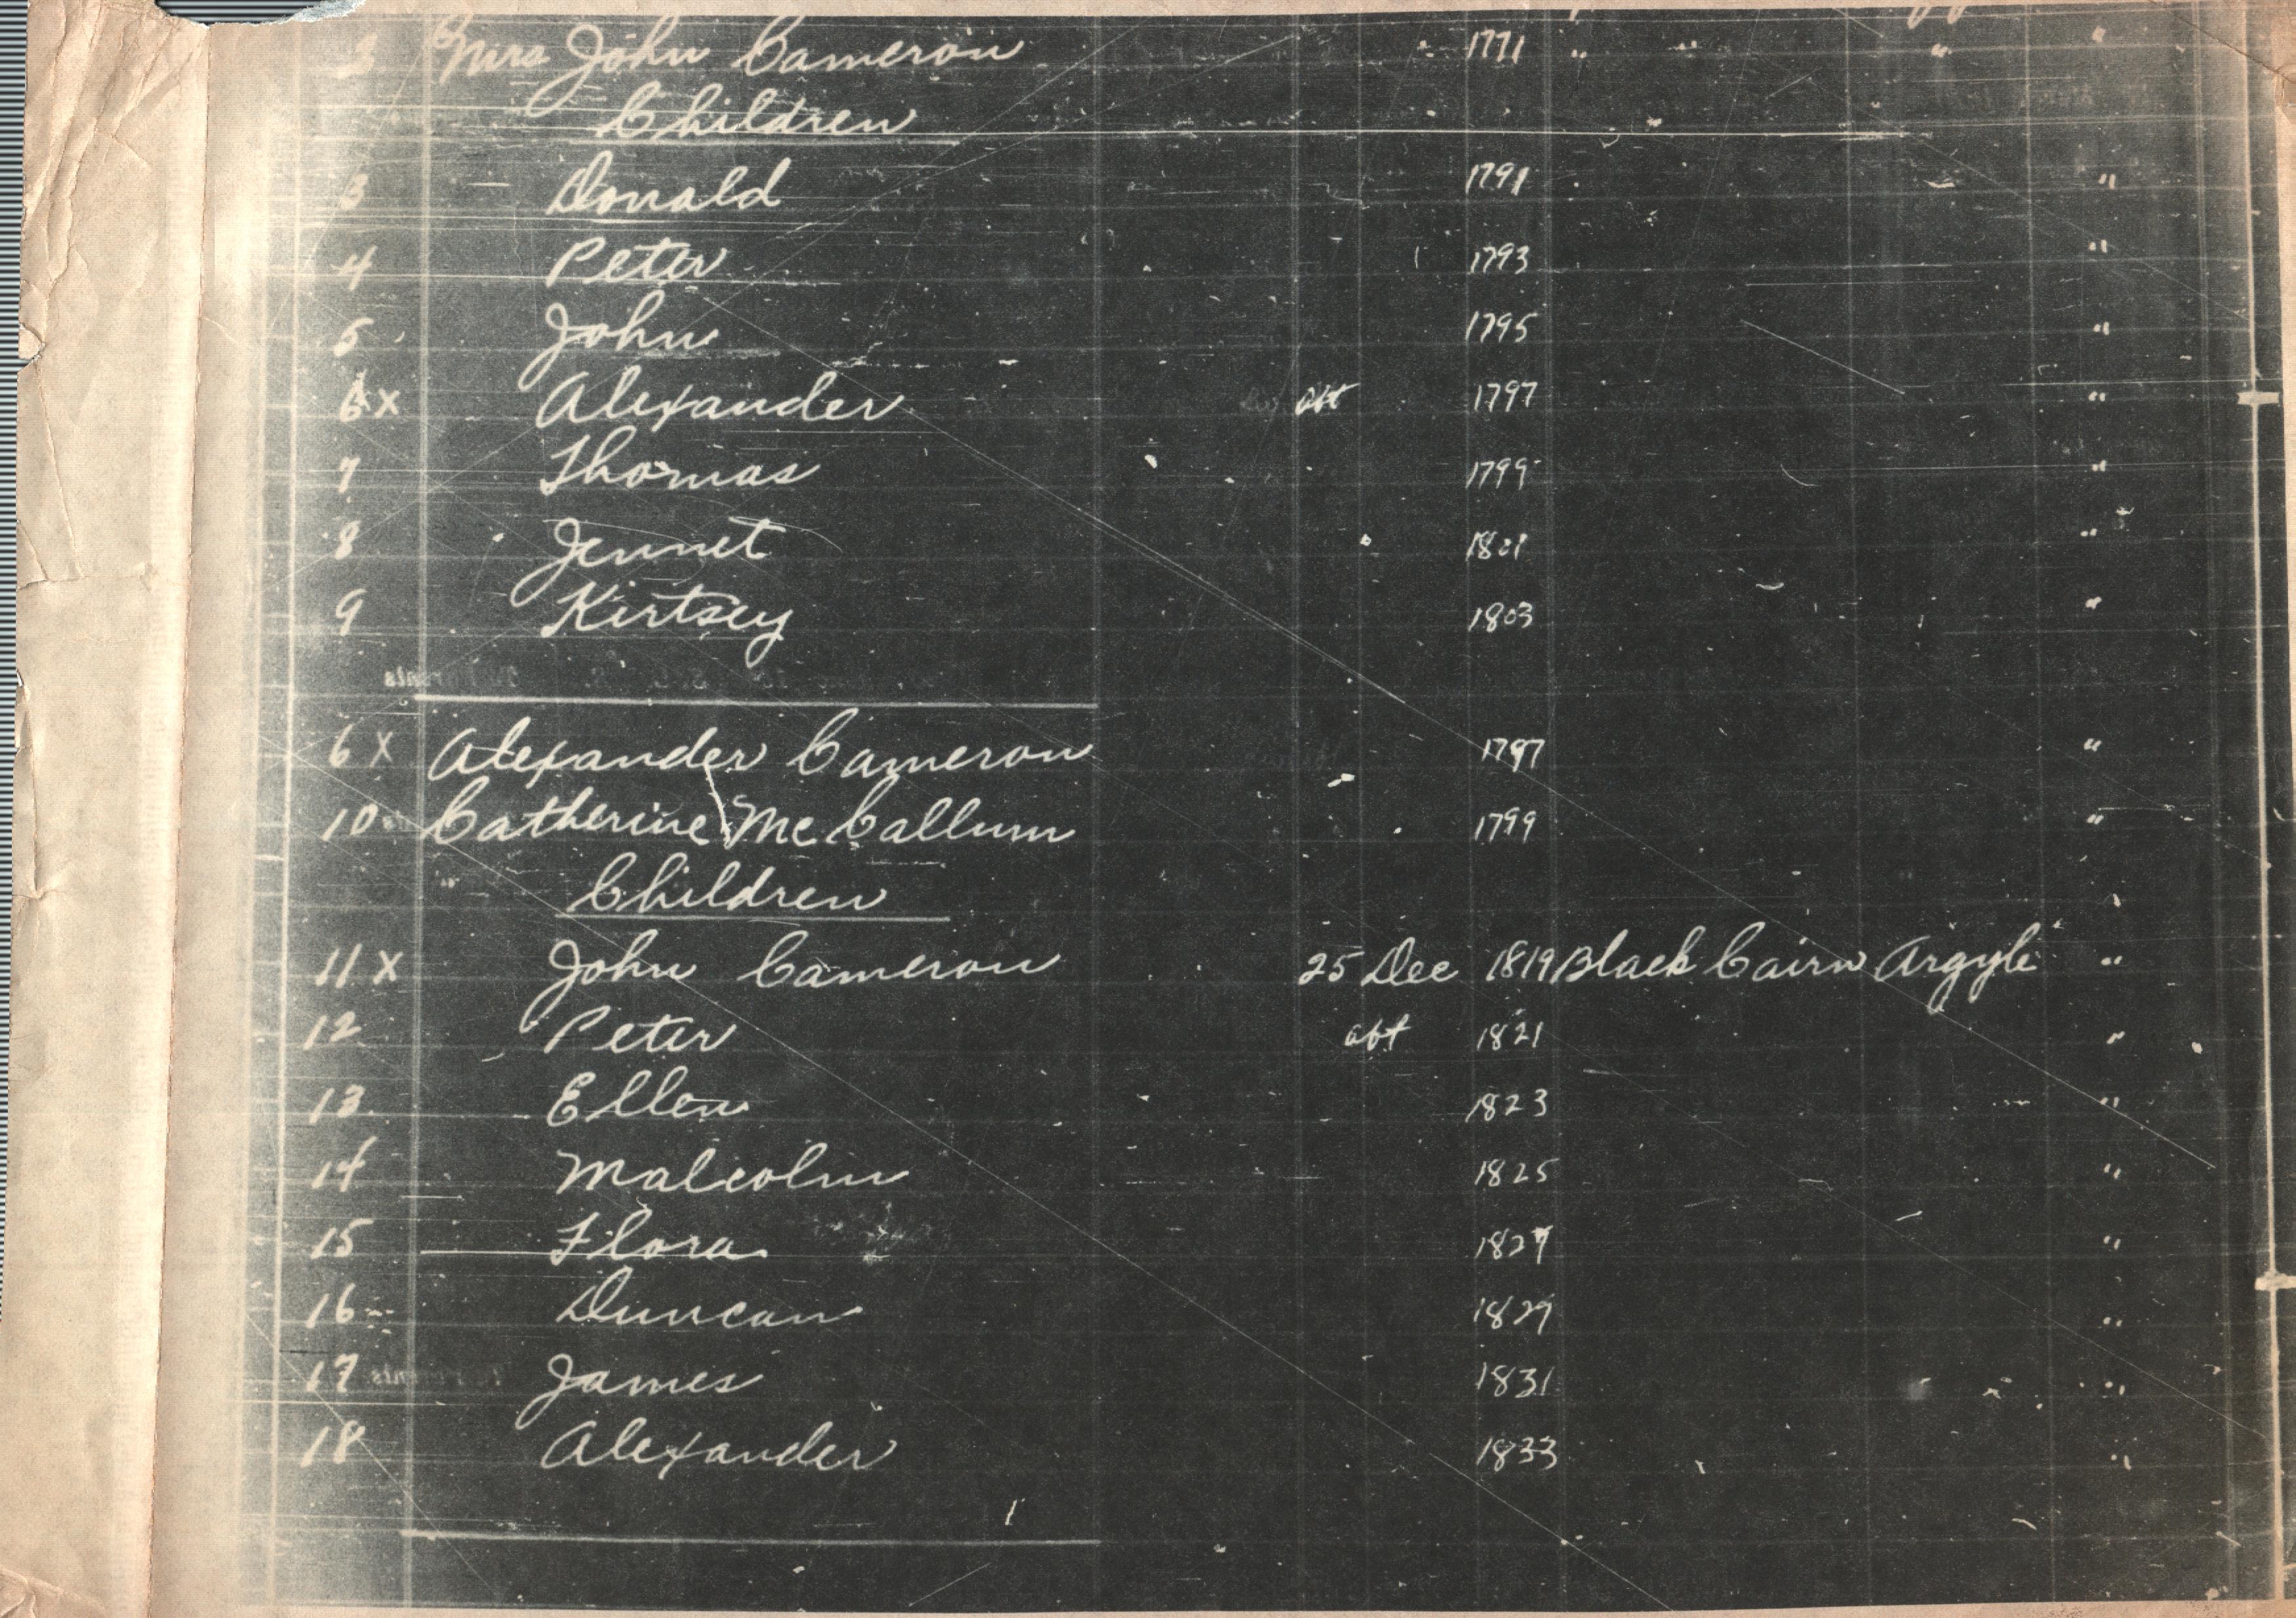 Mrs John Cameron 1771 " " " "
Children
3 Donald 1791 "
4 Peter 1793 "
5 John 1795 "
6 X Alexander abt 1797 "
7 Thomas 1799 "
8 Jennet 1801 "
9 Kirtsey 1803 "
6 X Alexander Cameron 1797 "
10 Catherine Mc Callum 1799 "
Children "
11 X John Cameron 25 Dec 1819 Black Cairn Argyle "
12 Peter abt 1821 "
13 Ellen 1823 "
14 Malcolm 1825 "
15 Flora 1827 "
16 Duncan 1829 "
17 James 1831 "
18 Alexander 1833 "